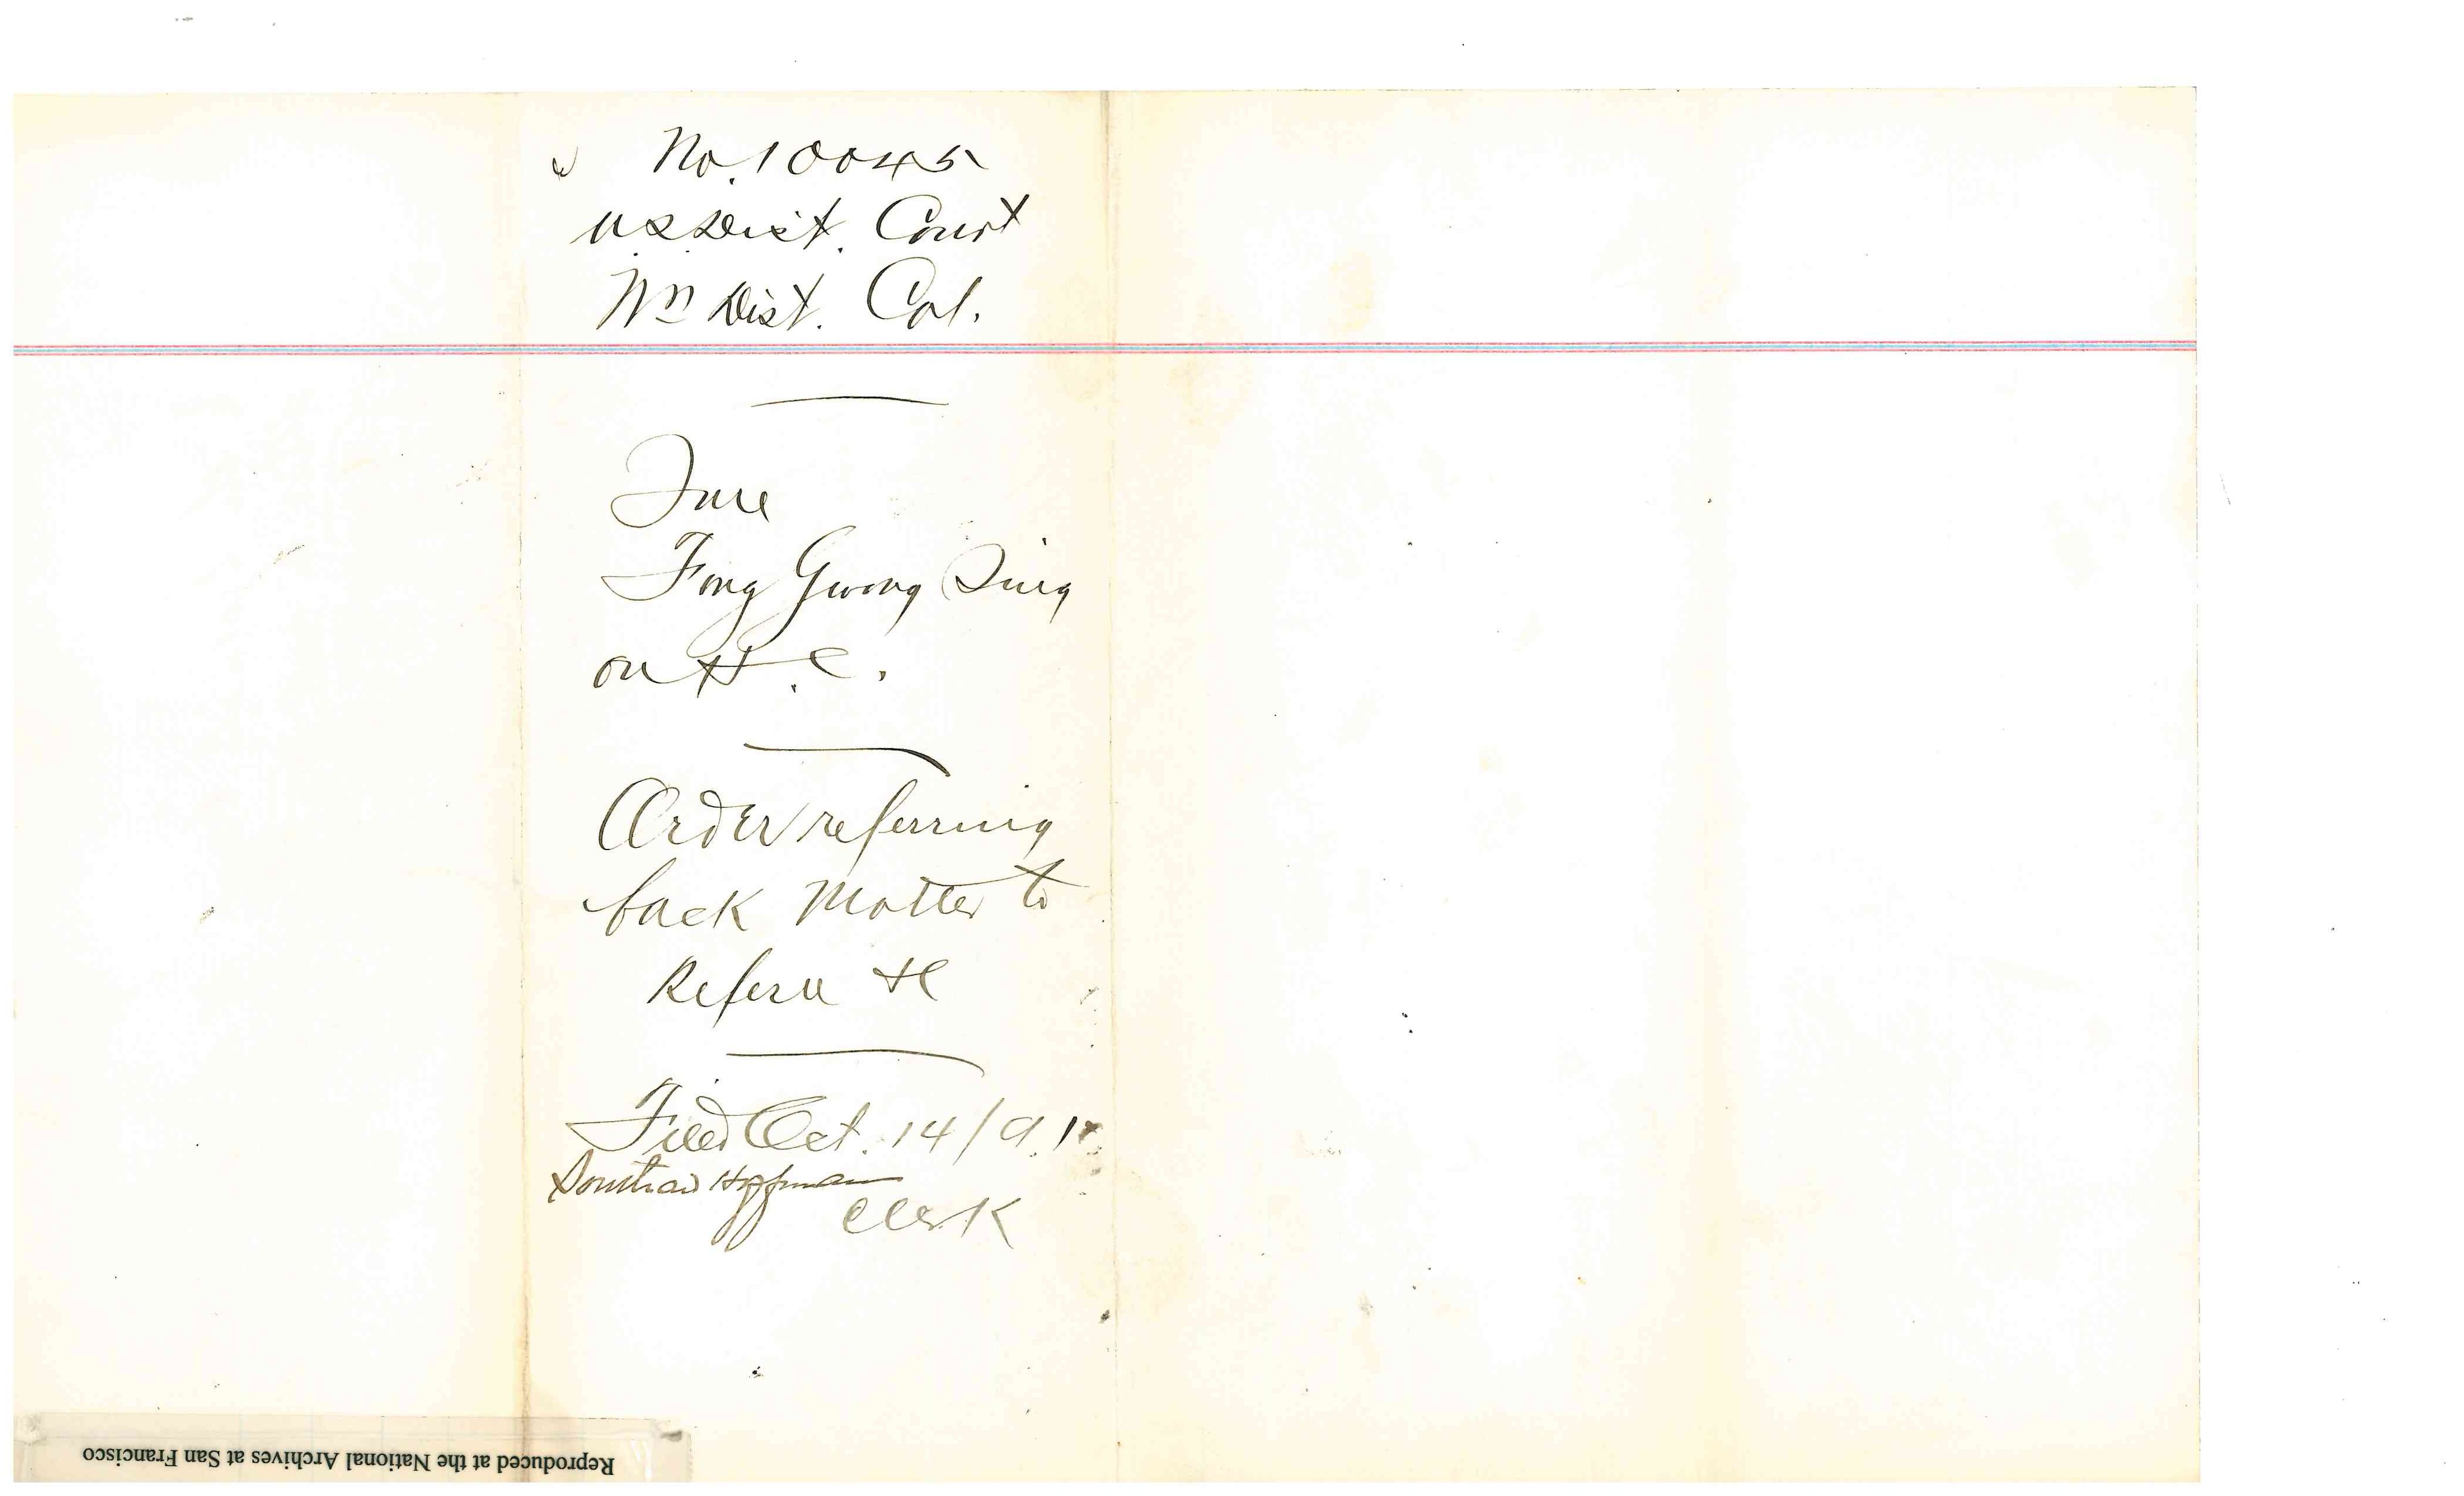 No. 10045
U.S. Dist. Court
Nn Dist. Cal.
In re
Fong Gwong Sing
on H. C.
Order referring
back Matter to
Referee &c
Filed Oct. 14/91
Southard Hoffman
Clerk
Reproduced at the National Archives at San Francisco